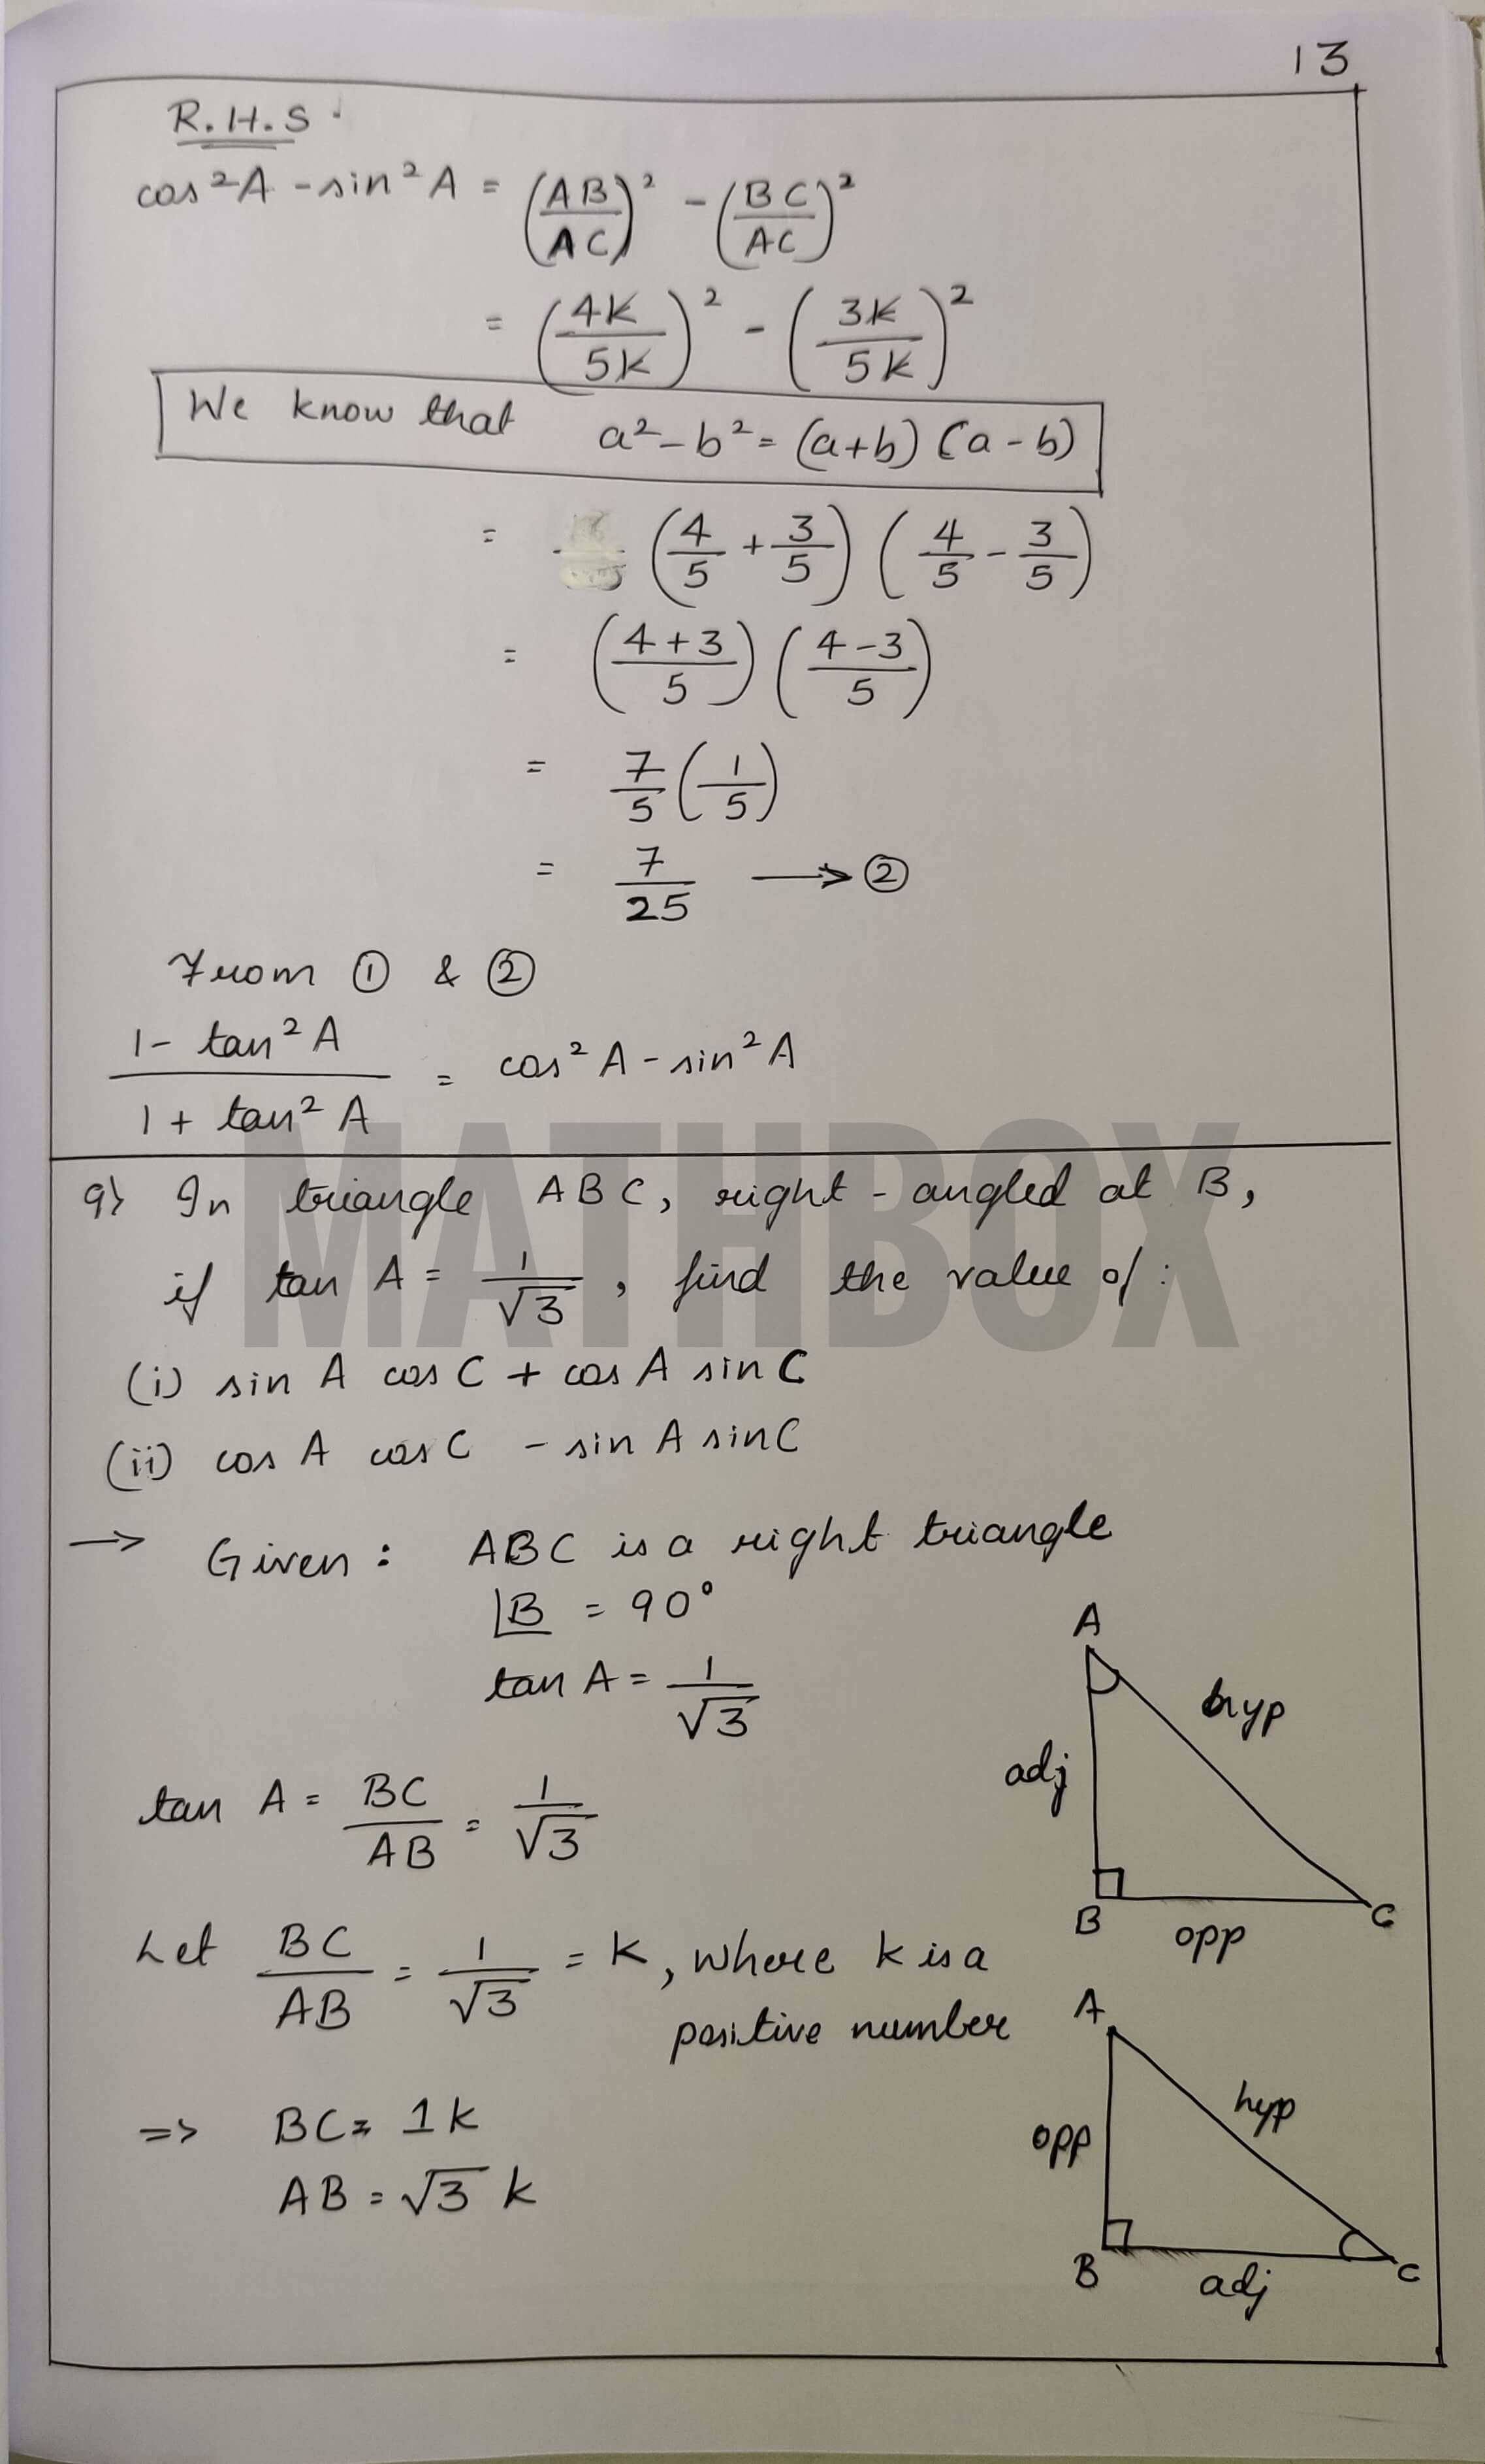 13
R.H.S.
cos²A - sin²A = (AB/AC)² - (BC/AC)²
= (4K/5K)² - (3K/5K)²
We know that a² - b² = (a+b) (a-b)
= (4/5 + 3/5) (4/5 - 3/5)
= (4+3/5) (4-3/5)
= 7/5 (1/5)
= 7/25 → ②
From ① & ②
1 - tan²A / 1 + tan²A = cos²A - sin²A
MATHBOX
9) In triangle ABC, right-angled at B,
if tan A = 1/√3, find the value of:
(i) sin A cos C + cos A sin C
(ii) cos A cos C - sin A sin C
→ Given: ABC is a right triangle
∠B = 90°
tan A = 1/√3
tan A = BC/AB = 1/√3
Let BC/AB = 1/√3 = K, where k is a
positive number
=> BC = 1k
AB = √3 k
A
hyp
adj
B
C
opp
A
hyp
opp
B
C
adj